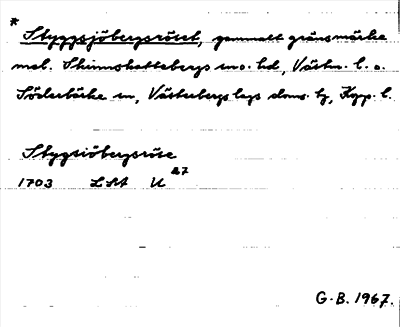 * Styggsjöbergsröset, gammalt gränsmärke
mel. Skinnskattebergs sn o. hd, Västm. l. o.
Söderbärke sn, Västerbergslags doms. tg, Kopp. l.
Stygsiöbergsröse
1703 LSA U 27
G.B. 1967.